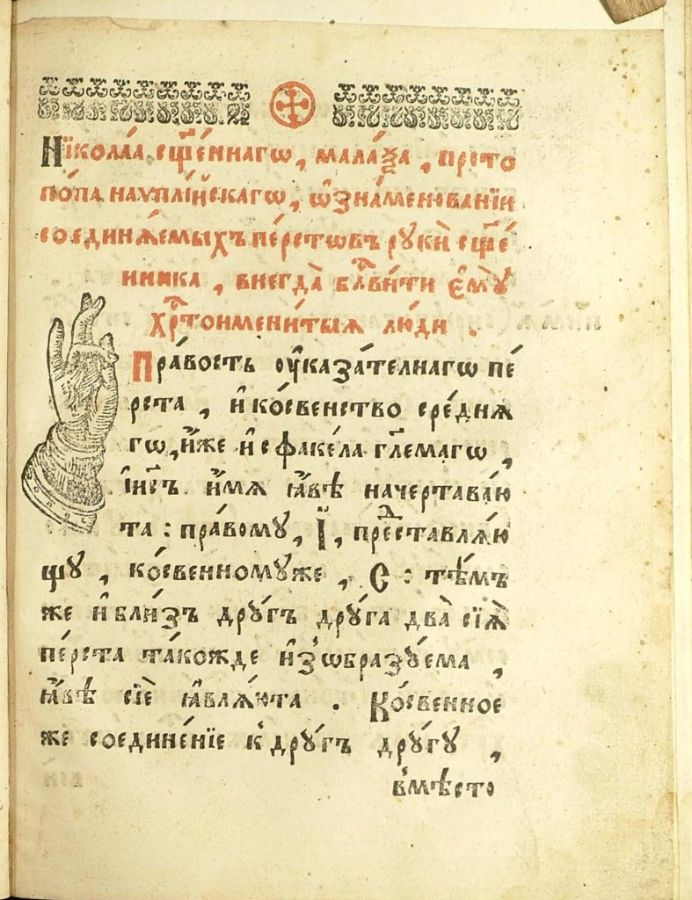 Нїкола́а сщ҃е́ннагѡ, мала́ѯа, прото
по́па наѵплі́йскагѡ, ѡ҆ зна́менованїи
соединѧ́емыхъ пе́рстѡвъ рꙋкѝ сщ҃е́
нника, внегда̀ бл҃гви́ти є҆мꙋ̀
хрⷭ҇тоимени́тыѧ лю́ди.
Пра́вость оу҆каза́телнагѡ пе́
рста, и҆ ко́свенство сре́днѧ
гѡ, и҆́же и҆ сфакела гл҃емагѡ,
і҆и҃съ и҆́мѧ ꙗ҆́вѣ начертава́ю
та: пра́вомꙋ, І҆, предⷭ҇тавлѧ́ю
щꙋ, ко́свенномꙋже, С: тѣ́мъ
же и҆ бли́зъ дрꙋ́гъ дрꙋ́га два̀ сїѧ̑
пе́рста та́кожде и҆з̾ѡбразꙋ́ема,
ꙗ҆́вѣ сїѐ ꙗ҆влѧ́юта. Ко́свенное
же соедине́нїе к̾ дрꙋ́гъ дрꙋ́гꙋ,
вмѣ́сто